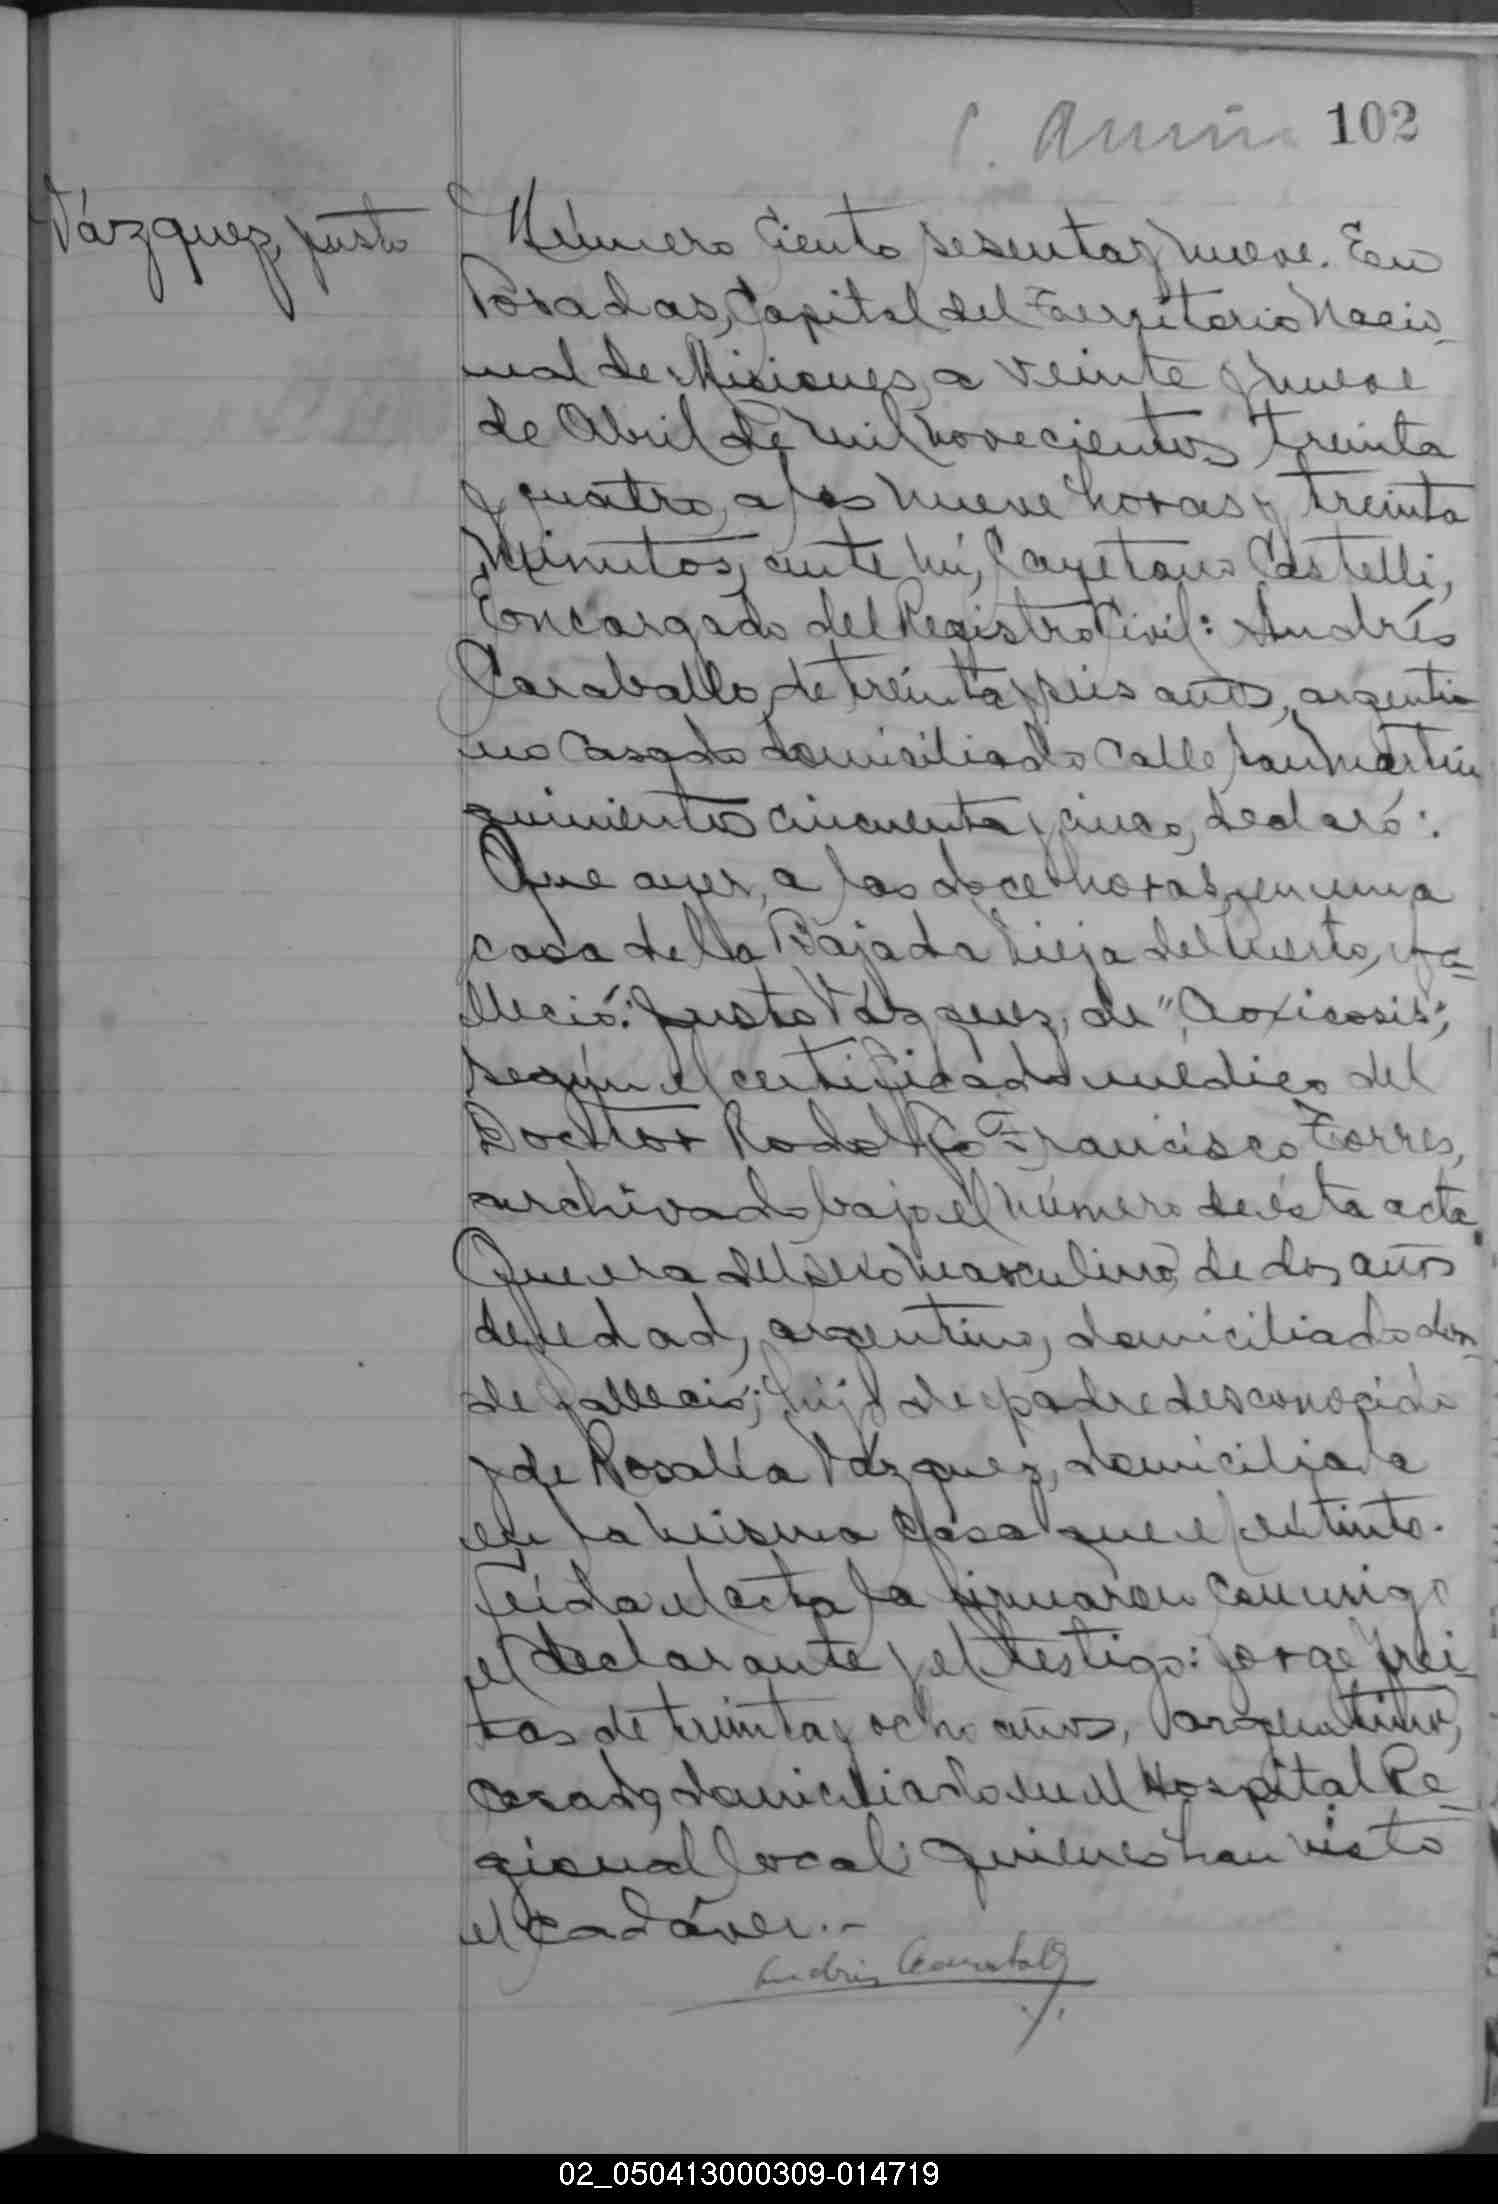 102
Vázquez, Justo
Número Ciento sesenta y nueve. En
Posadas, Capital del Territorio Nacio-
nal de Misiones, a veinte y nueve
de Abril de mil novecientos treinta
y cuatro, a las nueve horas y treinta
minutos, ante mí, Cayetano Castelli,
Encargado del Registro Civil: Andrés
Caraballo, de treinta y seis años, argenti-
no casado domiciliado calle San Martín
quinientos cincuenta y cinco, declaró:
Que ayer, a las doce horas, en una
casa de la Bajada Vieja del Puerto, fa-
lleció: Justo Vázquez, de "Toxicosis",
según el certificado médico del
Doctor Rodolfo Francisco Torres,
archivado bajo el número de ésta acta.
Que era del sexo masculino, de dos años
de edad, argentino, domiciliado don-
de falleció; hijo de padre desconocido
y de Rosalía Vázquez, domiciliada
en la misma casa que el extinto.
Leída el acta la firmaron conmigo
el declarante y el testigo: Jorge Frei-
tas de treinta y ocho años, argentino,
casado, domiciliado en el Hospital Re-
gional local quienes han visto
el cadáver.-
02_050413000309-014719